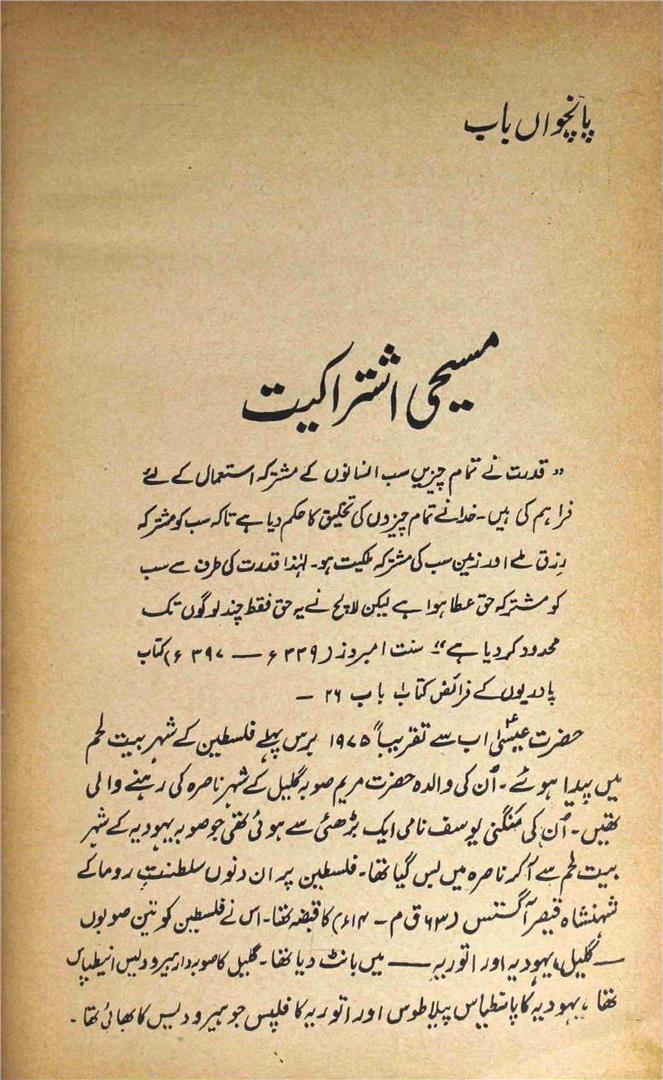 پانچواں باب
مسیحی اشتراکیت
” قدرت نے تمام چیزیں سب انسانوں کے مشترکہ استعمال کے لئے
فراہم کی ہیں۔ خدا نے تمام چیزوں کی تخلیق کا حکم دیا ہے تاکہ سب کو مشترکہ
رزق ملے اور زمین سب کی مشترکہ ملکیت ہو۔ لہٰذا قدرت کی طرف سے سب
کو مشترکہ حق عطا ہوا ہے لیکن لالچ نے یہ حق فقط چند لوگوں تک
محدود کر دیا ہے“ سنت امبروز (۳۳۹ء — ۳۹۷ء) کتاب
پادریوں کے فرائض کتاب ۱ باب ۲۶ —
حضرت عیسیٰؑ اب سے تقریباً ۱۹۷۵ برس پہلے فلسطین کے شہر بیت لحم
میں پیدا ہوئے۔ اُن کی والدہ حضرت مریم صوبہ گلیل کے شہر ناصرہ کی رہنے والی
تھیں۔ اُن کی منگنی یوسف نامی ایک بڑھئی سے ہوئی تھی جو صوبہ یہودیہ کے شہر
بیت لحم سے آکر ناصرہ میں بس گیا تھا۔ فلسطین پر ان دنوں سلطنتِ روما کے
شہنشاہ قیصر آگسٹس (۶۳ ق م – ۱۴ء) کا قبضہ تھا۔ اس نے فلسطین کو تین صوبوں
— گلیل، یہودیہ اور اتوریہ — میں بانٹ دیا تھا۔ گلیل کا صوبہ دار ہیرودیس انیطپاس
تھا، یہودیہ کا پانطیاس پیلاطوس اور اتوریہ کا فلپس جو ہیرودیس کا بھائی تھا۔